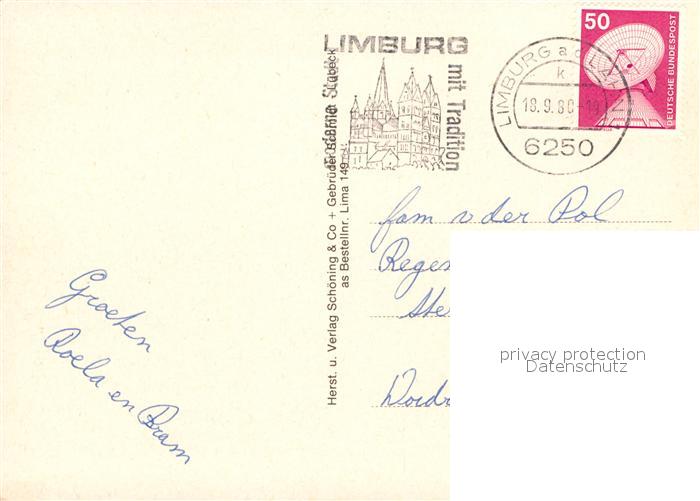 LIMBURG
mit Tradition
LIMBURG a.d. LAHN
k
18.9.80-19
6250
50
DEUTSCHE BUNDESPOST
Herst. u. Verlag Schöning & Co + Gebrüder Schmidt Lübeck
as Bestellnr. Lima 149
fam v der Pol
Regen
Ste
Dordr
Groeten
Roela en Bram
privacy protection
Datenschutz